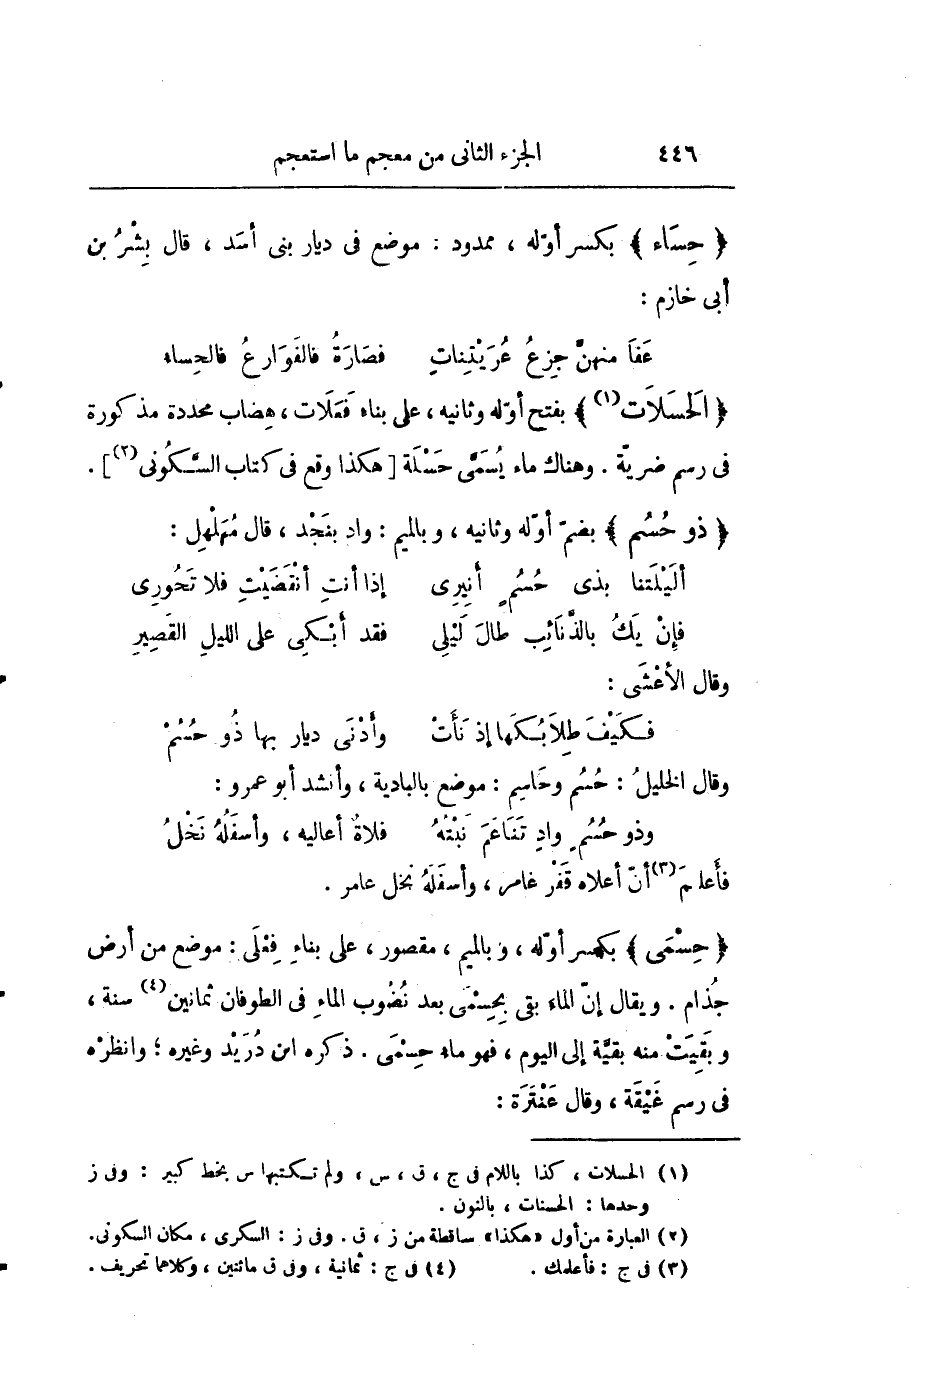 ٤٤٦ الجزء الثانى من معجم ما استعجم
﴿ حِسَاء ﴾ بكسر أوّله ، ممدود : موضع فى ديار بنى أسَد ، قال بِشْرُ بن
أبى خازم :
عَفَا منهنّ جِزعُ عُرَيْتِناتٍ فصَارَةُ فالفَوَارعُ فالحِساء
﴿ الَحسَلَات(١) ﴾ بفتح أوّله وثانيه ، على بناء فَعَلَات ، هِضاب محددة مذكورة
فى رسم ضريّة . وهناك ماء يُسَمَّى حَسْلَة [ هكذا وقع فى كتاب السَّكُونى(٢) ] .
﴿ ذو حُسُم ﴾ بضمّ أوّله وثانيه ، وبالميم : واد بنَجْد ، قال مُهَلْهِل :
ألَيْلَتنا بذى حُسُمٍ أنِيرِى إذا أنتِ انْقَضَيْتِ فلا تَحُورِى
فإنْ يَكُ بالذَّنَائِب طالَ لَيْلِى فقد أبْكِى على الليلِ القَصِيرِ
وقال الأعْشَى :
فكَيْفَ طِلَابُكَها إذ نَأَتْ وأَدْنَى ديار بها ذُو حُسُمْ
وقال الخليلُ : حُسُم وحَاسِم : موضع بالبادية ، وأنشد أبو عمرو :
وذو حُسُمٍ وادٍ تَفَاعَمَ نَبْتُهُ فلاةٌ أعاليه ، وأسفَلُهُ نَخْلُ
فأَعلمَ(٣) أنّ أعلاه قَفْر غامر ، وأسفَلَهُ نخل عامر .
﴿ حِسْمَى ﴾ بكسر أوّله ، وبالميم ، مقصور ، على بناءِ فِعْلَى : موضع من أرض
جُذام . ويقال إنّ الماء بقى بِحِسْمَى بعد نُضُوب الماءِ فى الطوفان ثمانين(٤) سنة ،
وبَقِيَتْ منه بقيَّة إلى اليوم ، فهو ماء حِسْمَى . ذكره ابن دُرَيْد وغيره ؛ وانظرْه
فى رسم غَيْقَة ، وقال عَنْتَرَة :
(١) الحسلات ، كذا باللام فى ج ، ق ، س ، ولم تكتبها س بخط كبير : وفى ز
وحدها : الحسنات ، بالنون .
(٢) العبارة من أول «هكذا» ساقطة من ز ، ق . وفى ز : السكرى ، مكان السكونى.
(٣) فى ج : فأعلمك . (٤) فى ج : ثمانية ، وفى ق مائتين ، وكلاهما تحريف .